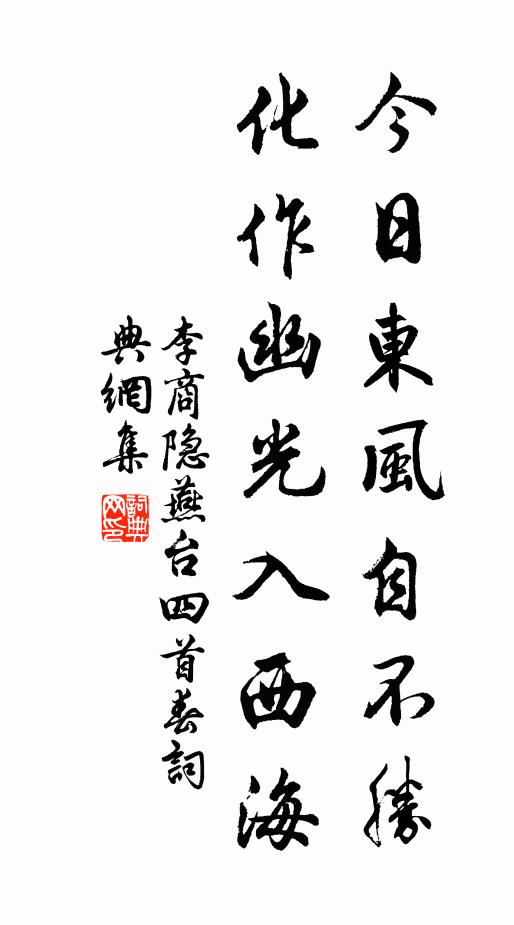 今日東風自不勝
化作幽光入西海
李商隐燕台四首春詞
典網集
詞典
网印